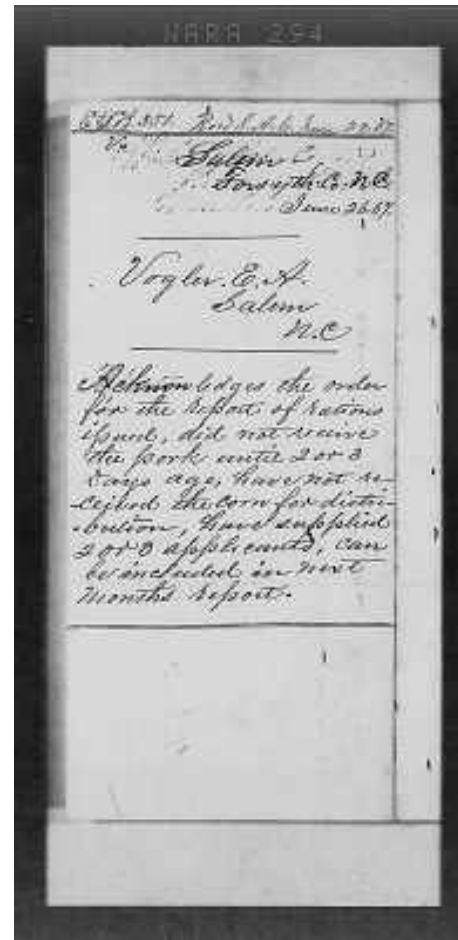 NARA 294
Salem
Forsyth Co. N.C.
June 26.67.
Vogler. E. A.
Salem
N.C
Acknowledges the order
for the report of rations
issued, did not receive
the pork until 2 or 3
days ago, have not re-
-ceived the corn for distri-
-bution, have supplied
2 or 3 applicants, can
be included in next
months report.